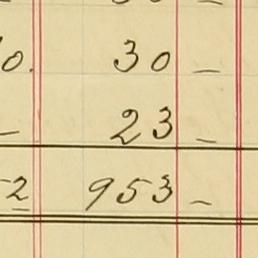 0. 30 –
– 23 –
2 953 –